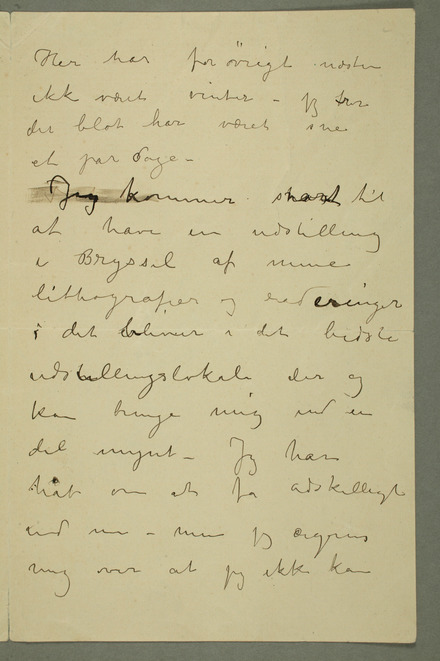 Her har forøvrigt næsten
ikke været vinter – jeg tror
det blot har været sne
et par Dage –
Jeg kommer snart til
at have en udstilling
i Bryssel af mine
lithografier og raderinger
i det bliver i det bedste
udstillingslokale der og
kan bringe mig ind en
del mynt – Jeg har
håb om at få adskilligt
ind nu – men jeg ærgrer
mig over at jeg ikke kan